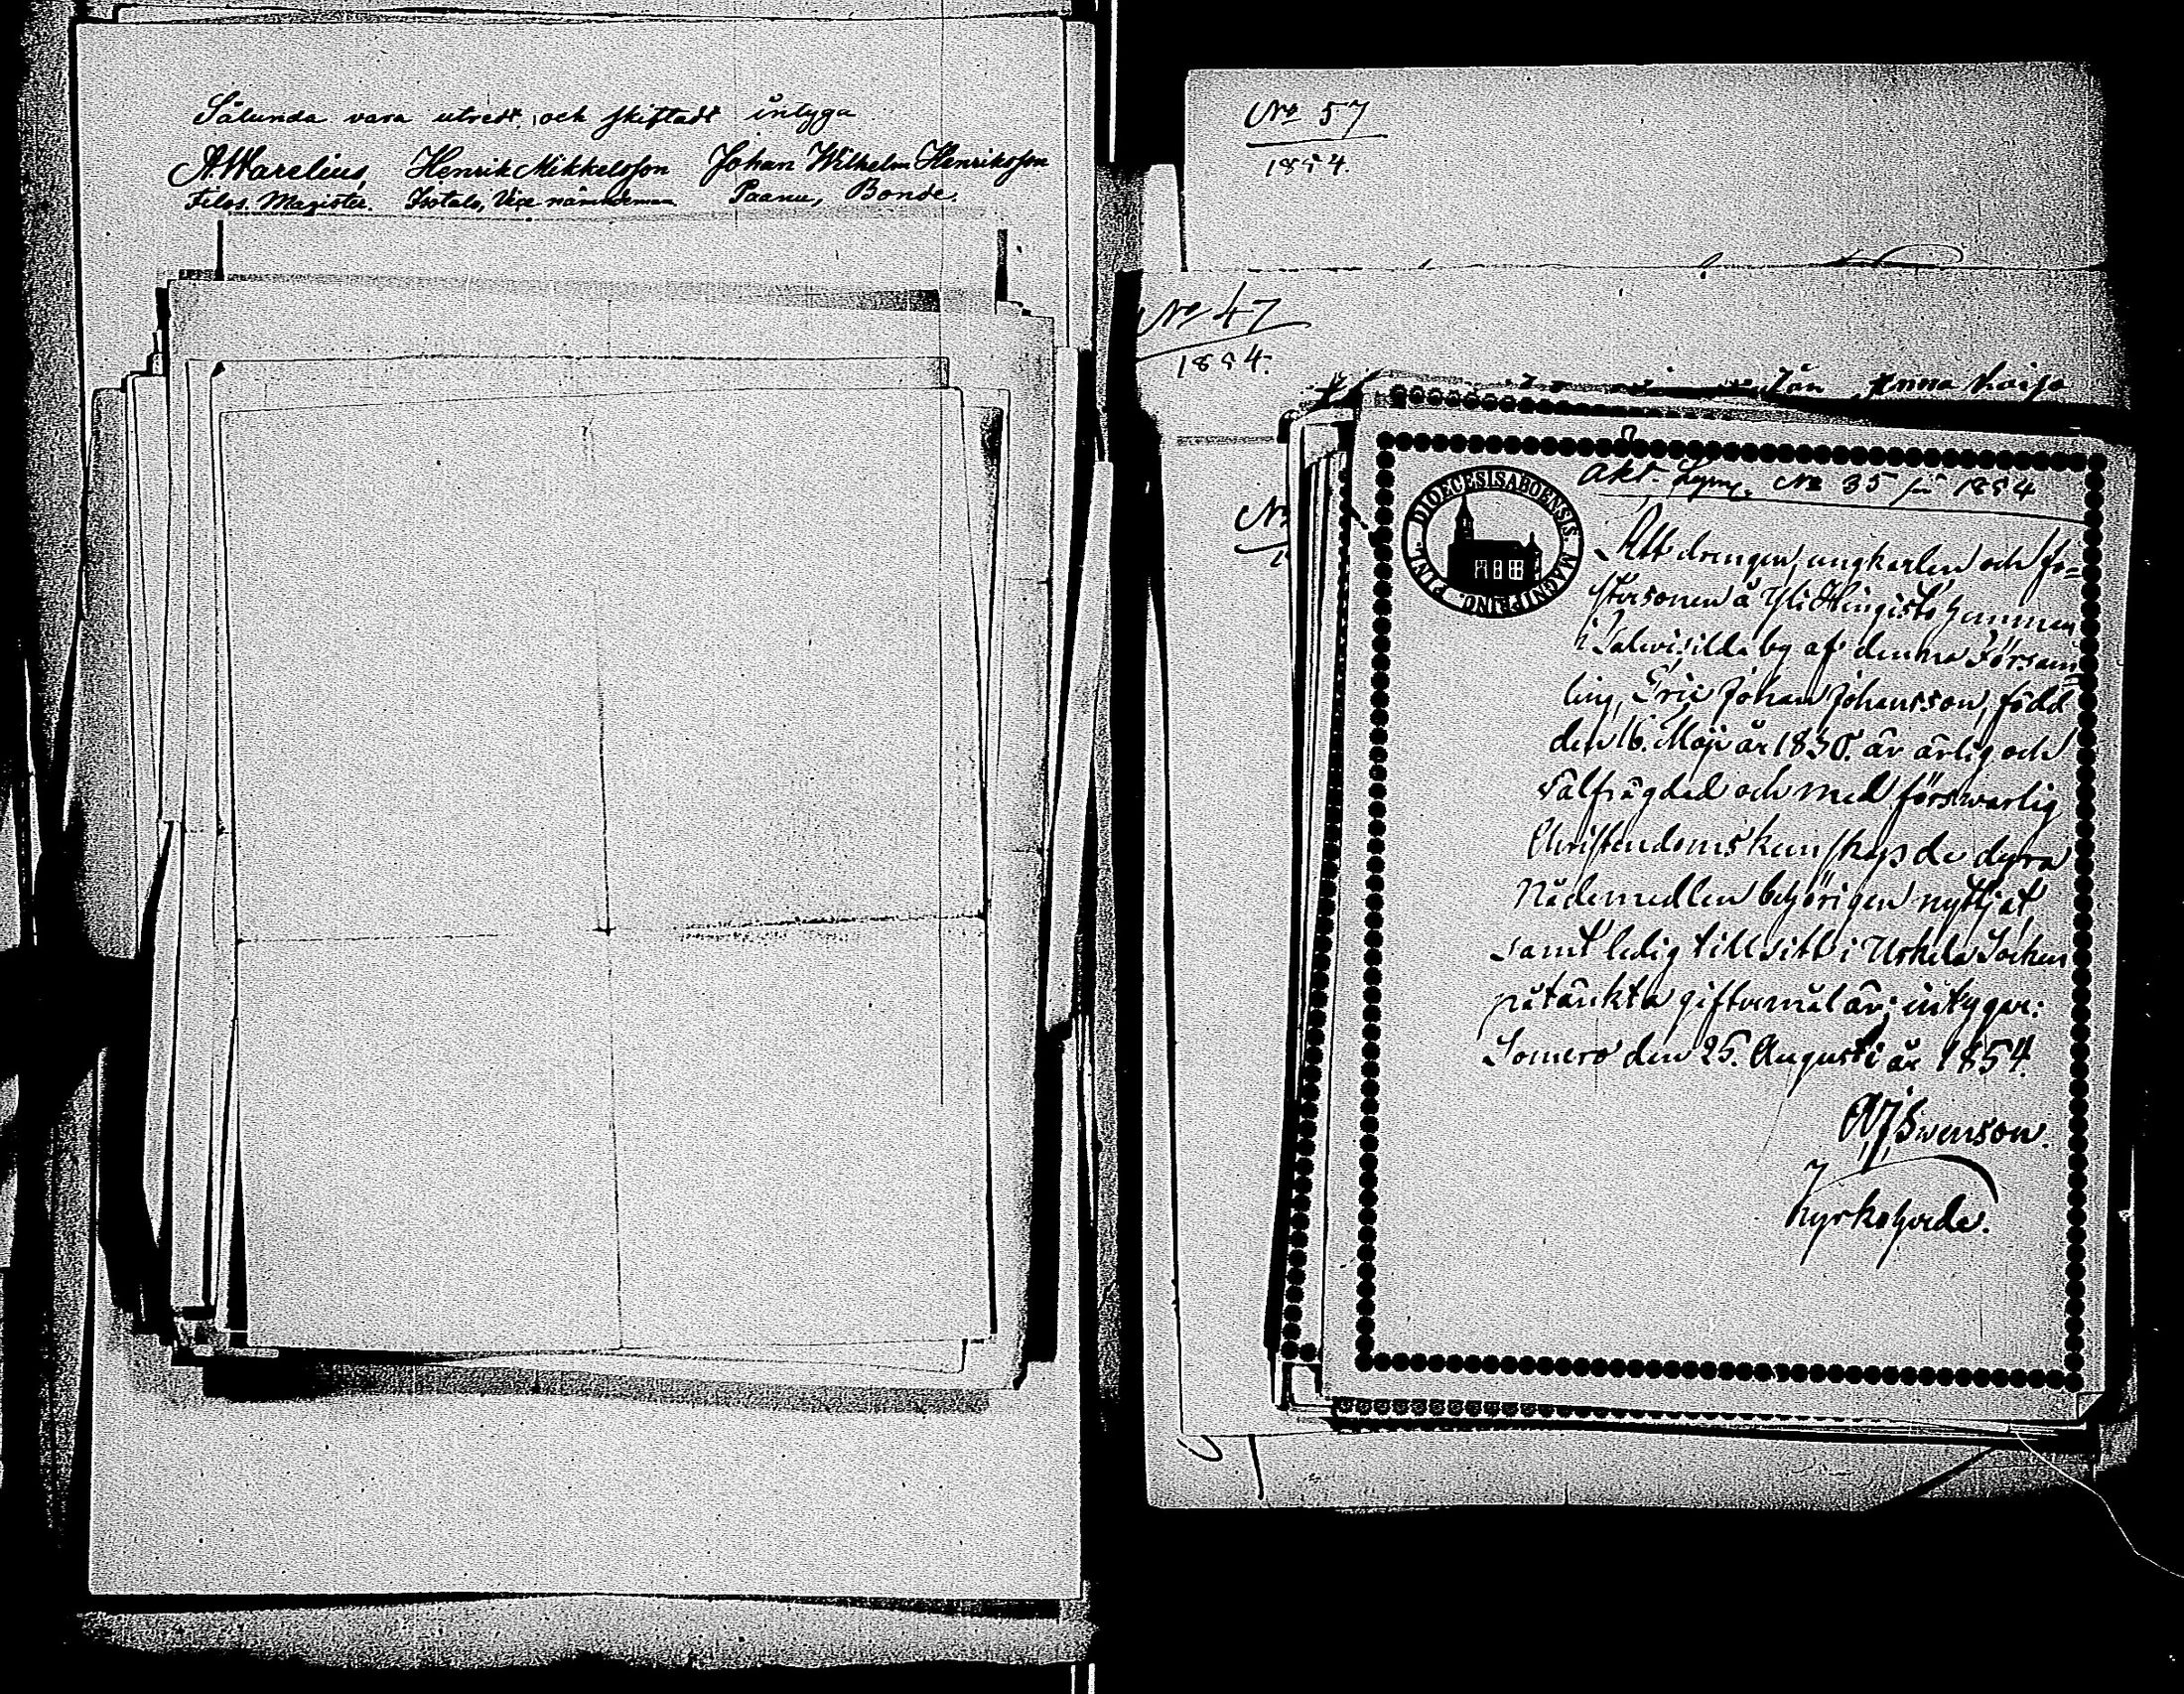 Sålunda vara utredt och skiftadt intyga
AWarelius, Henrik Mikkelsson Johan Wilhelm Henriksson
Filos. Magister. Isotalo, Vice nämndeman Paanu, Bonde.
No 57
1854.
No 47
1854.
Anna Kaisa
No
DIOECESIS ABOENSIS. MAGNI PRINC. FINL.
Akt. No 35 för 1854
Att drengen, ungkarlen och fo=
stersonen å Yli Hingisto hemman
i by af denna Försam
ling, Eric Johan Johansson, född
den 16. Maji år 1830. är ärlig och
välfrägdad och med förswarlig
Christendomskunskap de dyra
Nådemedlen behörigen nyttjat,
samt ledig till sitt i Uskela Socken
påtänkta giftermål är; intygar:
Somero den 25. Augusti år 1854.
Swenson.
Kyrkoherde.